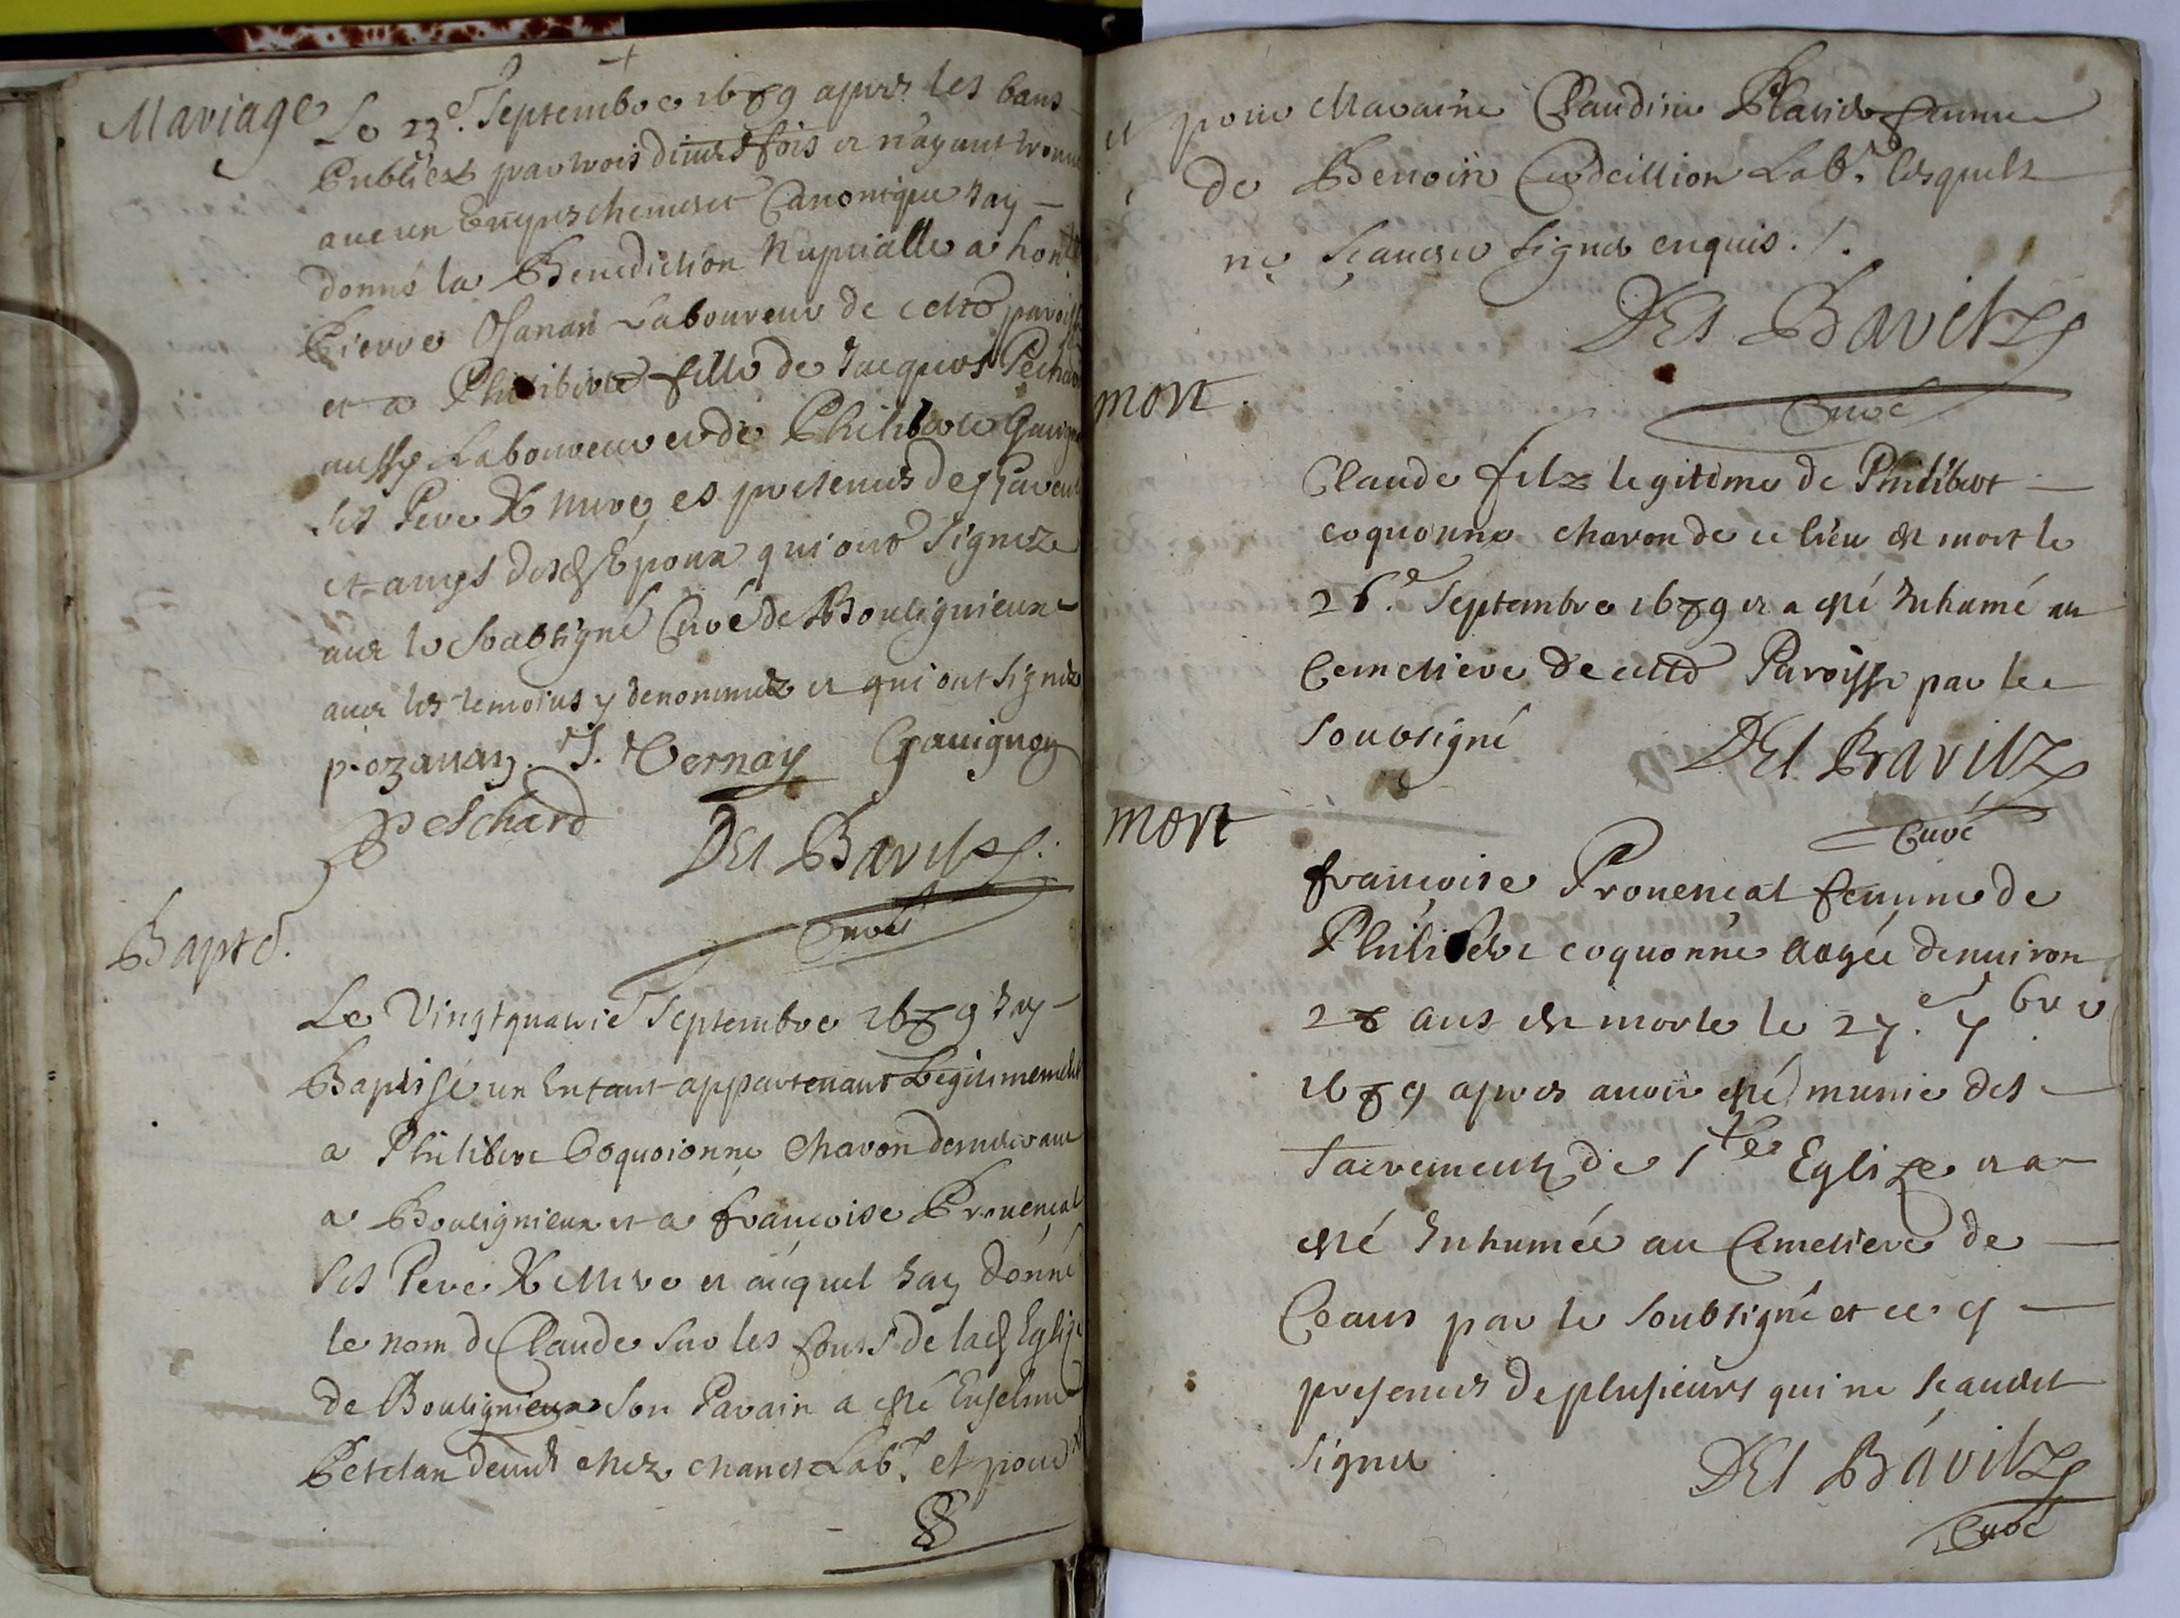 Mariage
Le 23e. Septembre 1689 apres les bans
Publiez par trois divers fois et n'ayant trouve
aucun Empeschement Canonique Jay
donné la Benediction Nuptialle a hon
Pierre Osanan Laboureur de cette paroisse
et a Philiberte fille de Jacques Pechard
aussy Laboureur et de Philiberte Gavign
ses Pere & mere es presences des parents
et amys desd Epoux qui ont Signez
avec le Soubsigné Curé de Bouligneux
avec les temoins y denommez et qui ont signez
p. ozanan. J. Vernay Gavignon
Peschard
DEs Bavitz
Curé
Bapte.
Le Vingtquatrie Septembre 1689 Jay
Baptisé un Enfant appartenant Legitimement
a Philibert Coquoionne Charon demeurant
a Boulignieux et a françoise Provençal
ses Pere & Mere et auquel Jay donné
le nom de Claude sur les fonts de lad Eglize
de Boulignieux son Parain a esté Enselme
Petelan demt chez Labr. et pour
et pour Maraine Claudine femme
de Benoin Labr. lesquels
ne Scavent signer enquis.
DEs Bavitz
Curé
mort.
Claude filz legitime de Philibert
coquonne charon de ce lieu est mort le
26e. Septembre 1689 et a esté Inhumé au
Cemetiere de cette Paroisse par le
soubsigné
DEs Bavitz
Curé
mort
françoise Provençal femme de
Philibert coquonne aagée denviron
28 ans est morte le 27.e 7bre
1689 apres avoir esté munie des
sacrements de Ste Eglize et a
esté Inhumée au Cemetiere de
Ceans par le soubsigné et ce
presences de plusieurs qui ne scavent
signer
DEs Bavitz
Curé